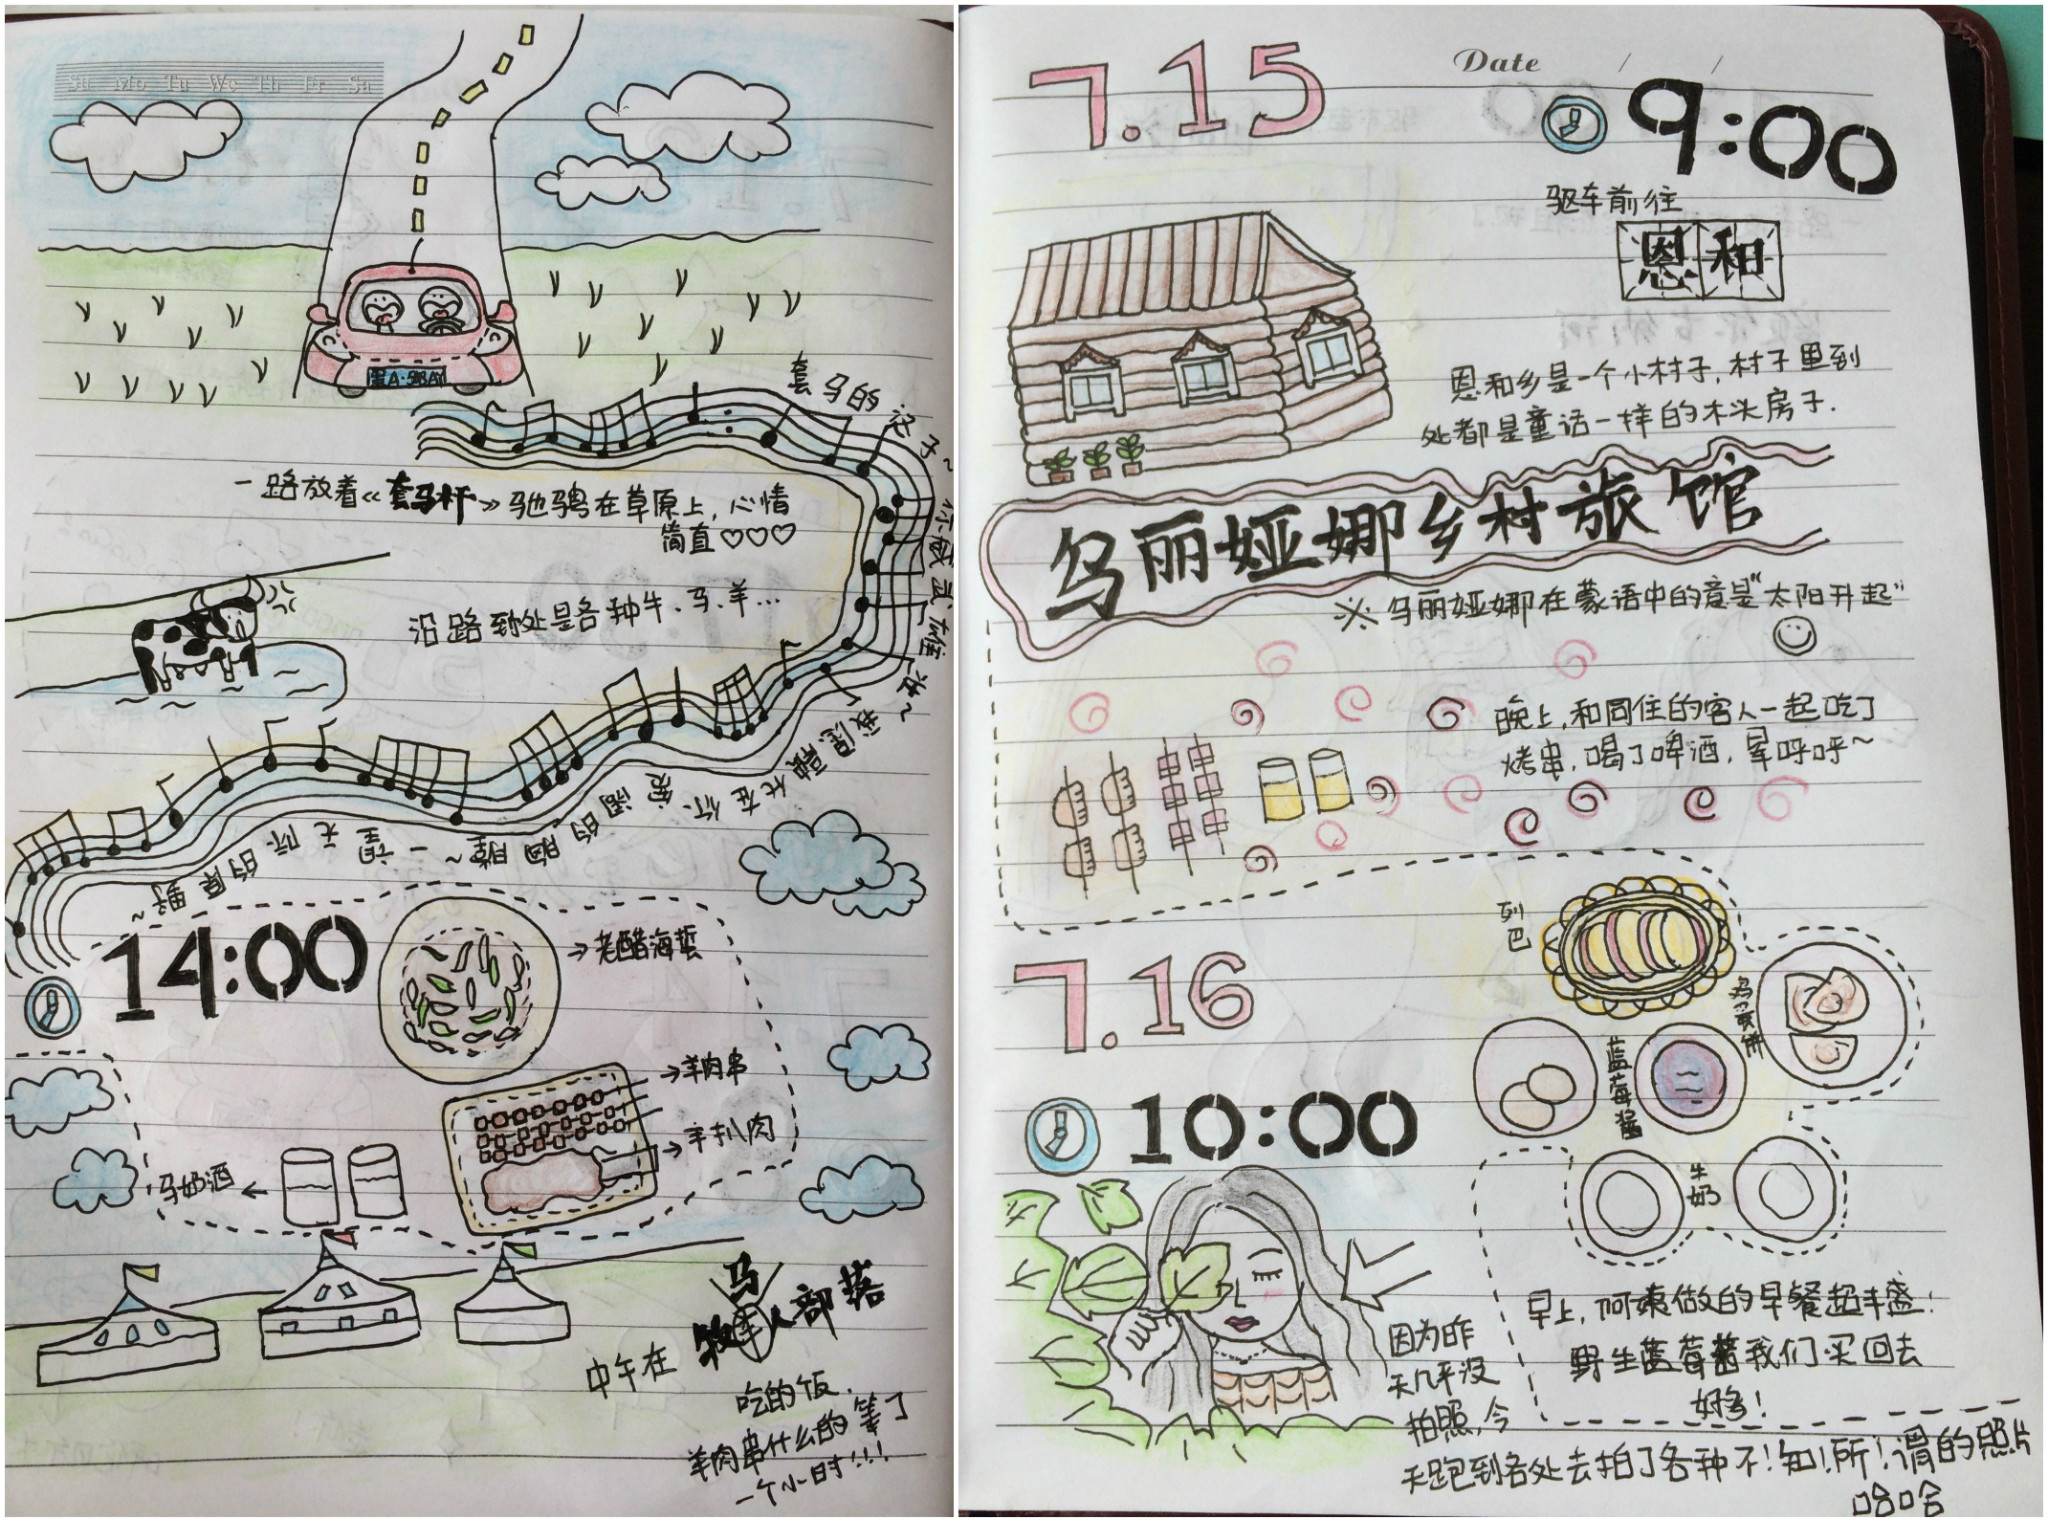 Su Mo Tu We Th Fr Sa
套马的汉子~你威武雄壮~
一路放着《套马杆》驰骋在草原上,心情
简直♡♡♡
沿路到处是各种牛、马、羊...
一望无际的原野~
14:00
→老醋海蜇
→羊肉串
→羊扒肉
马奶酒←
中午在
人部落
吃的饭.
羊肉串什么的等了
一个小时!!!
7.15
Date / /
9:00
驱车前往
恩和
恩和乡是一个小村子,村子里到
处都是童话一样的木头房子.
乌丽娅娜乡村旅馆
※乌丽娅娜在蒙语中的意是“太阳升起”
晚上,和同住的客人一起吃了
烤串,喝了啤酒,晕呼呼~
列巴
7.16
蓝莓酱
10:00
牛奶
早上,阿姨做的早餐超丰盛!
野生蓝莓酱我们买回去
好多!
因为昨
天几乎没
拍照,今
天跑到各处去拍了各种不!知!所!谓的照片
哈哈